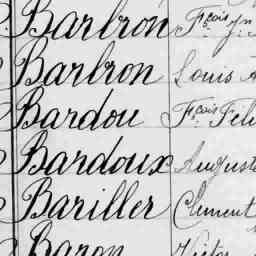 Barbron Fçois Jn
Barbron Louis
Bardou Fçois Féli
Bardoux Auguste
Bariller Clément
Baron Victor